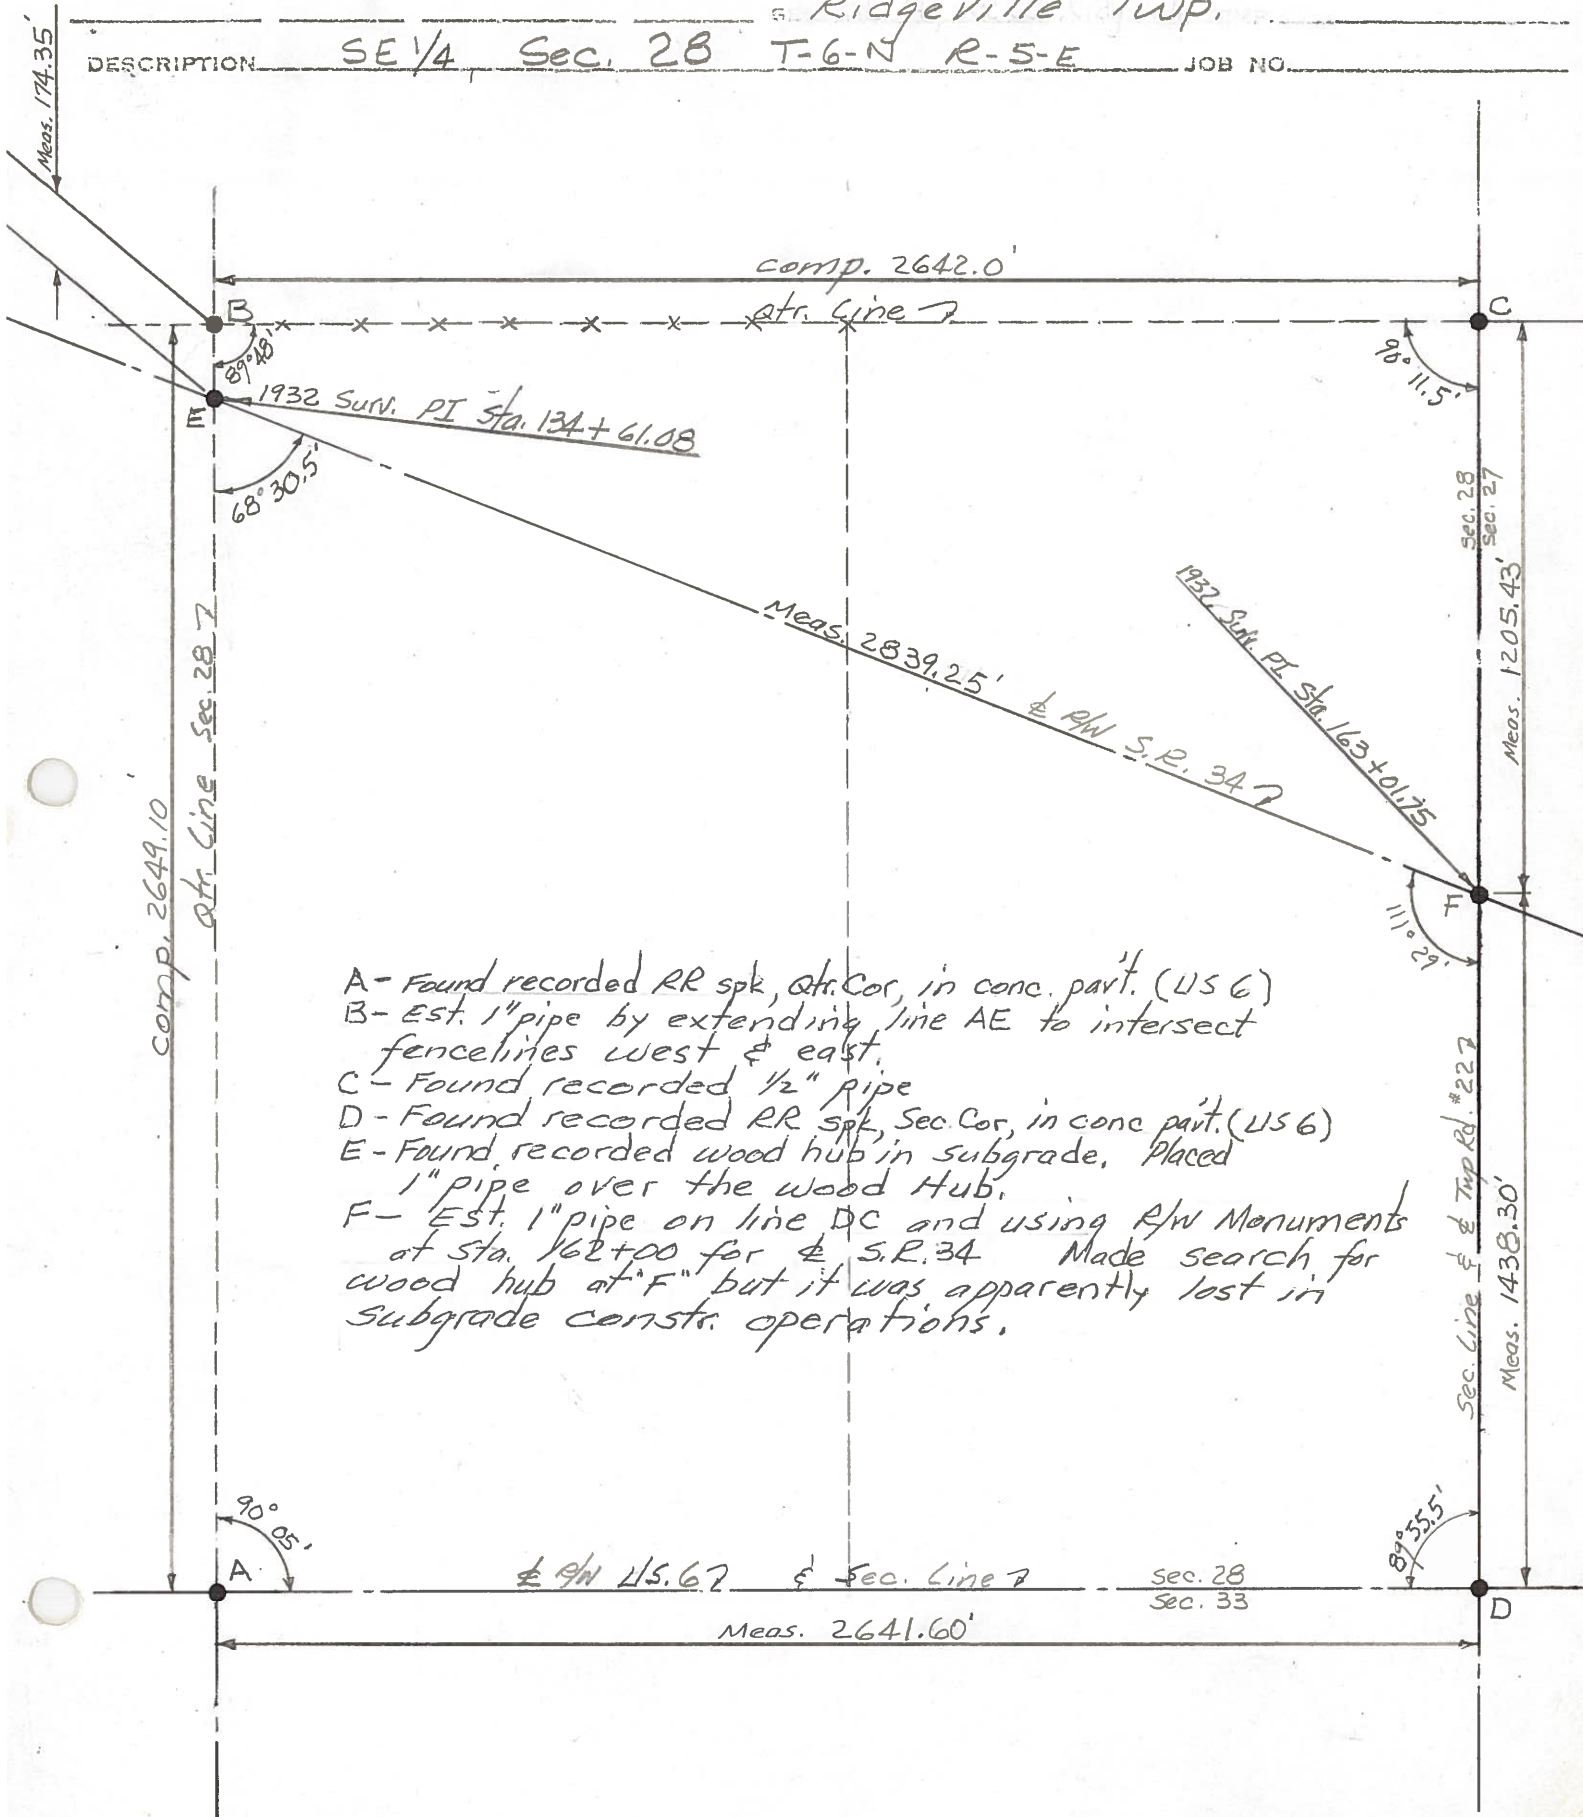 Ridgeville Twp.
DESCRIPTION SE 1/4, Sec. 28 T-6-N R-5-E JOB NO.
Meas. 174.35'
comp. 2642.0'
Qtr. Line
B
C
89°48'
90° 11.5'
E
1932 Surv. PI Sta. 134+61.08
68°30.5'
Sec. 28
Sec. 27
Meas. 1205.43'
1932 Surv. PI Sta. 163+01.75
Meas. 2839.25'
℄ R/W S.R. 34
Qtr. Line Sec. 28
Comp. 2649.10
F
111° 29'
A- Found recorded RR spk, Qtr. Cor, in conc. pav't. (US 6)
B- Est. 1" pipe by extending line AE to intersect
fencelines west & east.
C - Found recorded 1/2" pipe
D - Found recorded RR spk, Sec. Cor, in conc pav't. (US 6)
E - Found recorded wood hub in subgrade. Placed
1" pipe over the wood Hub.
F- Est. 1" pipe on line DC and using R/W Monuments
at Sta. 162+00 for ℄ S.R. 34 Made search for
wood hub at "F" but it was apparently lost in
subgrade constr. operations.
Sec. Line & ℄ Twp Rd. #22
Meas. 1438.30'
90° 05'
89°55.5'
A
℄ R/W U.S. 6 & Sec. Line
Sec. 28
Sec. 33
D
Meas. 2641.60'